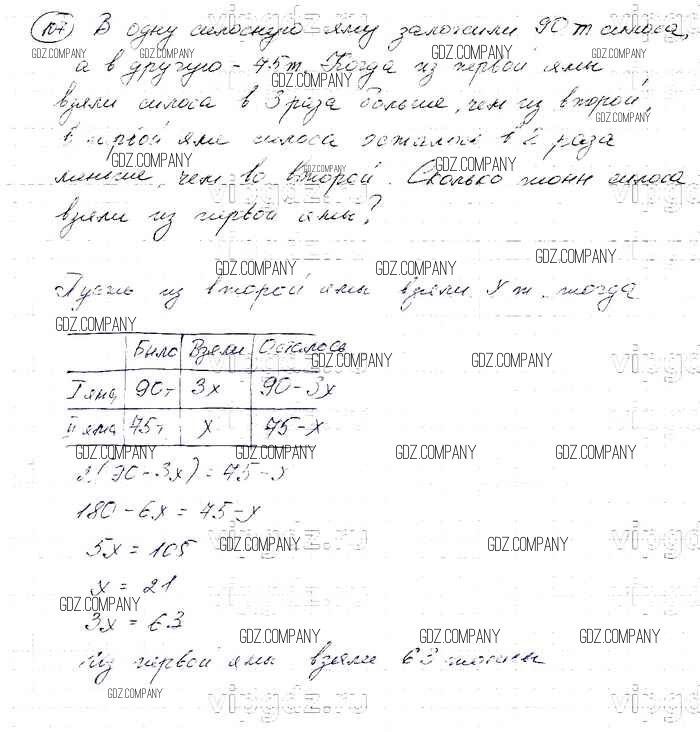 107) В одну силосную яму заложили 90 т силоса,
GDZ.COMPANY GDZ.COMPANY GDZ.COMPANY
а в другую - 75 т. Когда из первой ямы
GDZ.COMPANY
взяли силоса в 3 раза больше, чем из второй,
GDZ.COMPANY
в первой яме силоса осталось в 2 раза
GDZ.COMPANY GDZ.COMPANY GDZ.COMPANY
меньше, чем во второй. Сколько тонн силоса
vipgdz.ru vipgdz.ru
взяли из первой ямы?
GDZ.COMPANY GDZ.COMPANY GDZ.COMPANY
Пусть из второй ямы взяли x т, тогда
GDZ.COMPANY
Было Взяли Осталось
GDZ.COMPANY GDZ.COMPANY vipgdz.ru
I яма 90т 3x 90-3x
II яма 75т x 75-x
GDZ.COMPANY GDZ.COMPANY GDZ.COMPANY GDZ.COMPANY
2(90-3x)=75-x
180-6x=75-x
GDZ.COMPANY GDZ.COMPANY vipgdz.ru vipgdz.ru
5x=105
x=21
GDZ.COMPANY
3x=63
GDZ.COMPANY GDZ.COMPANY GDZ.COMPANY
Из первой ямы взяли 63 тонны
GDZ.COMPANY
vipgdz.ru vipgdz.ru